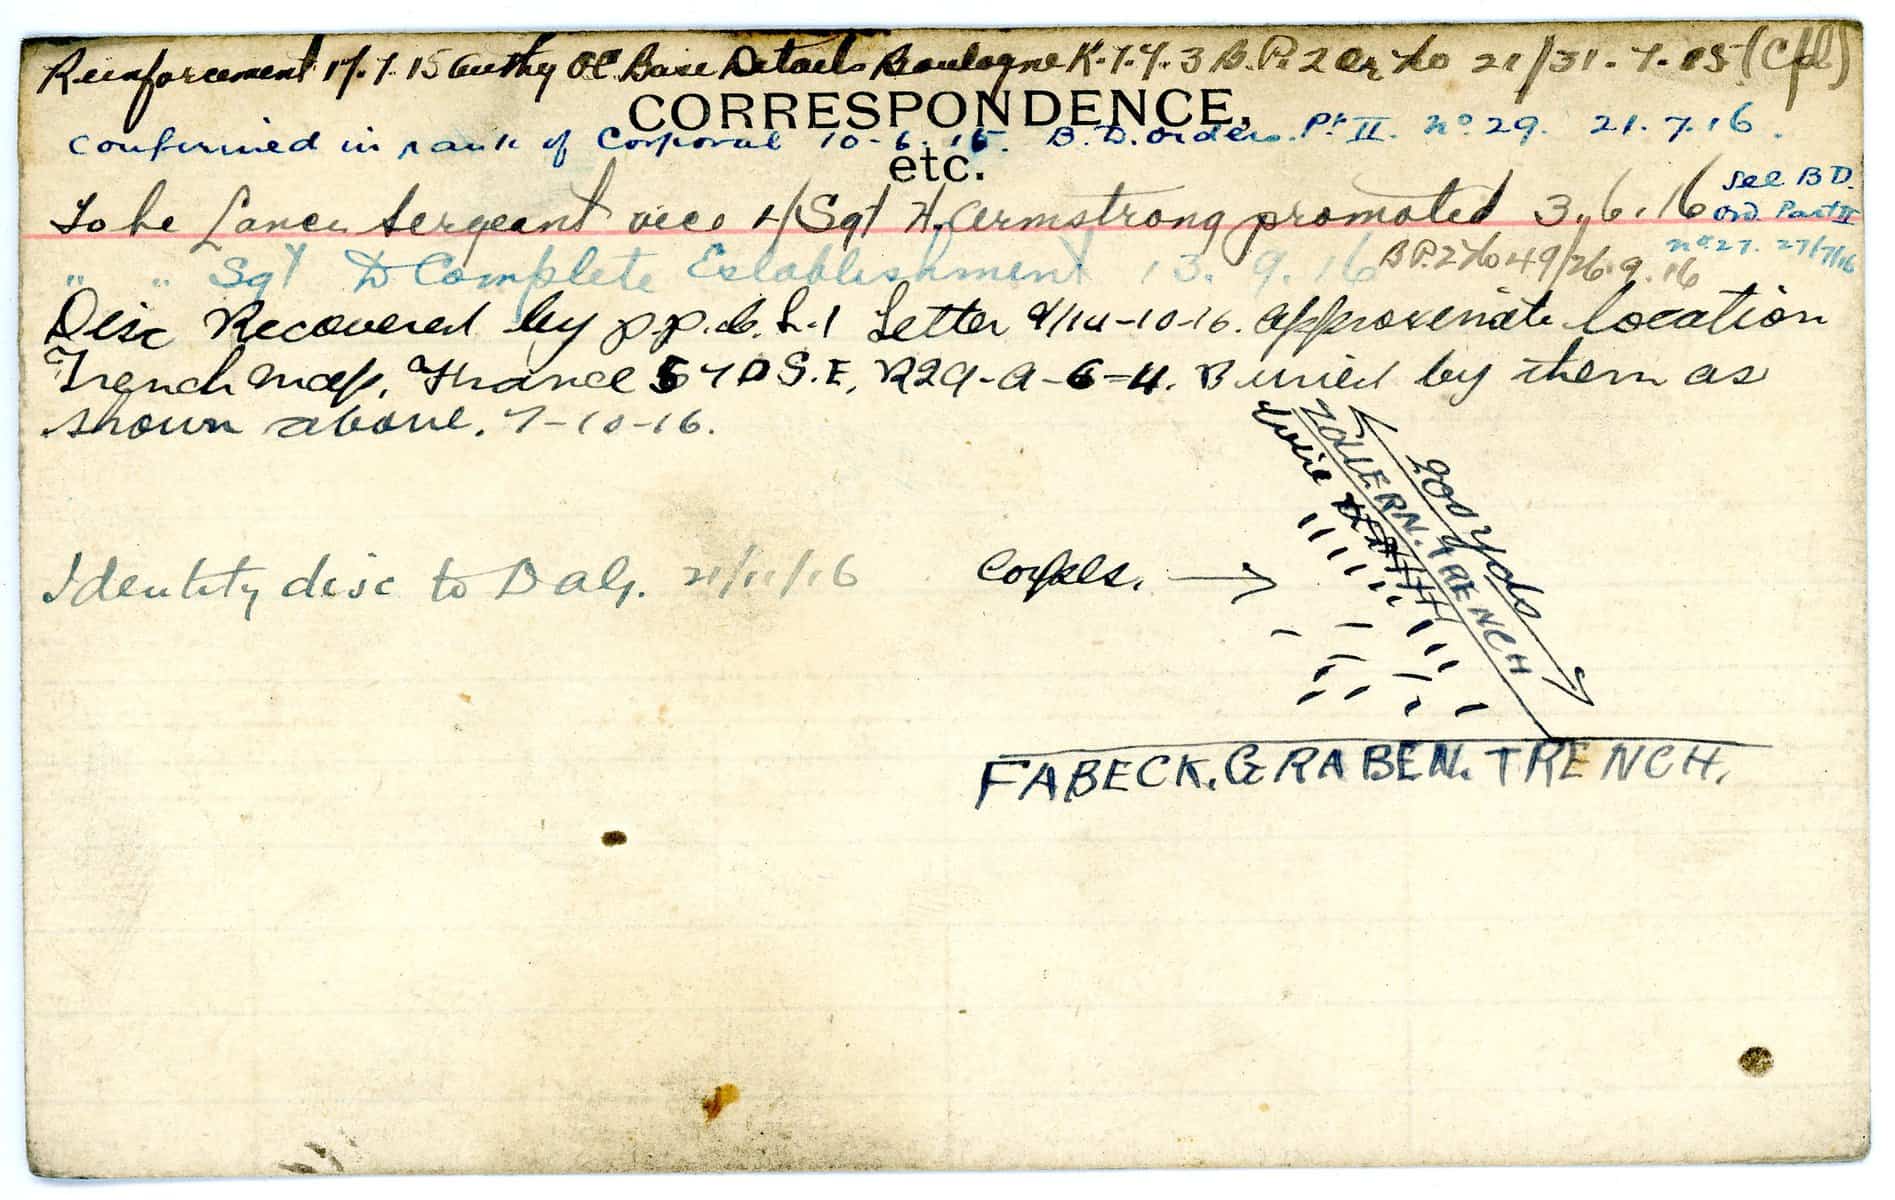 Reinforcement 17.7.15 Authy O.C. Base Details Boulogne K.7.7.3 B.P. 2 Or No 21/31.7.15 (Cpl)
CORRESPONDENCE,
Confirmed in rank of Corporal 10-6-15. B.D. Orders. Pt II. No 29. 21.7.16.
etc.
To be Lance Sergeant vice L/Sgt H. Armstrong promoted 3.6.16
See B D.
Ord Part II
No 27. 27/7/16
" " Sgt To Complete Establishment 13.9.16 B P. 2 No 49/26.9.16
Disc Recovered by p.p.c.l.I Letter d/14-10-16. Approximate location
Trench Map, France 57D S.E, R29-A-6-4. Buried by them as
shown above. 7-10-16.
200 yds
ZOLLERN. TRENCH
Wire
Identity disc to DAG. 21/11/16
Corpses.
FABECK. GRABEN. TRENCH.